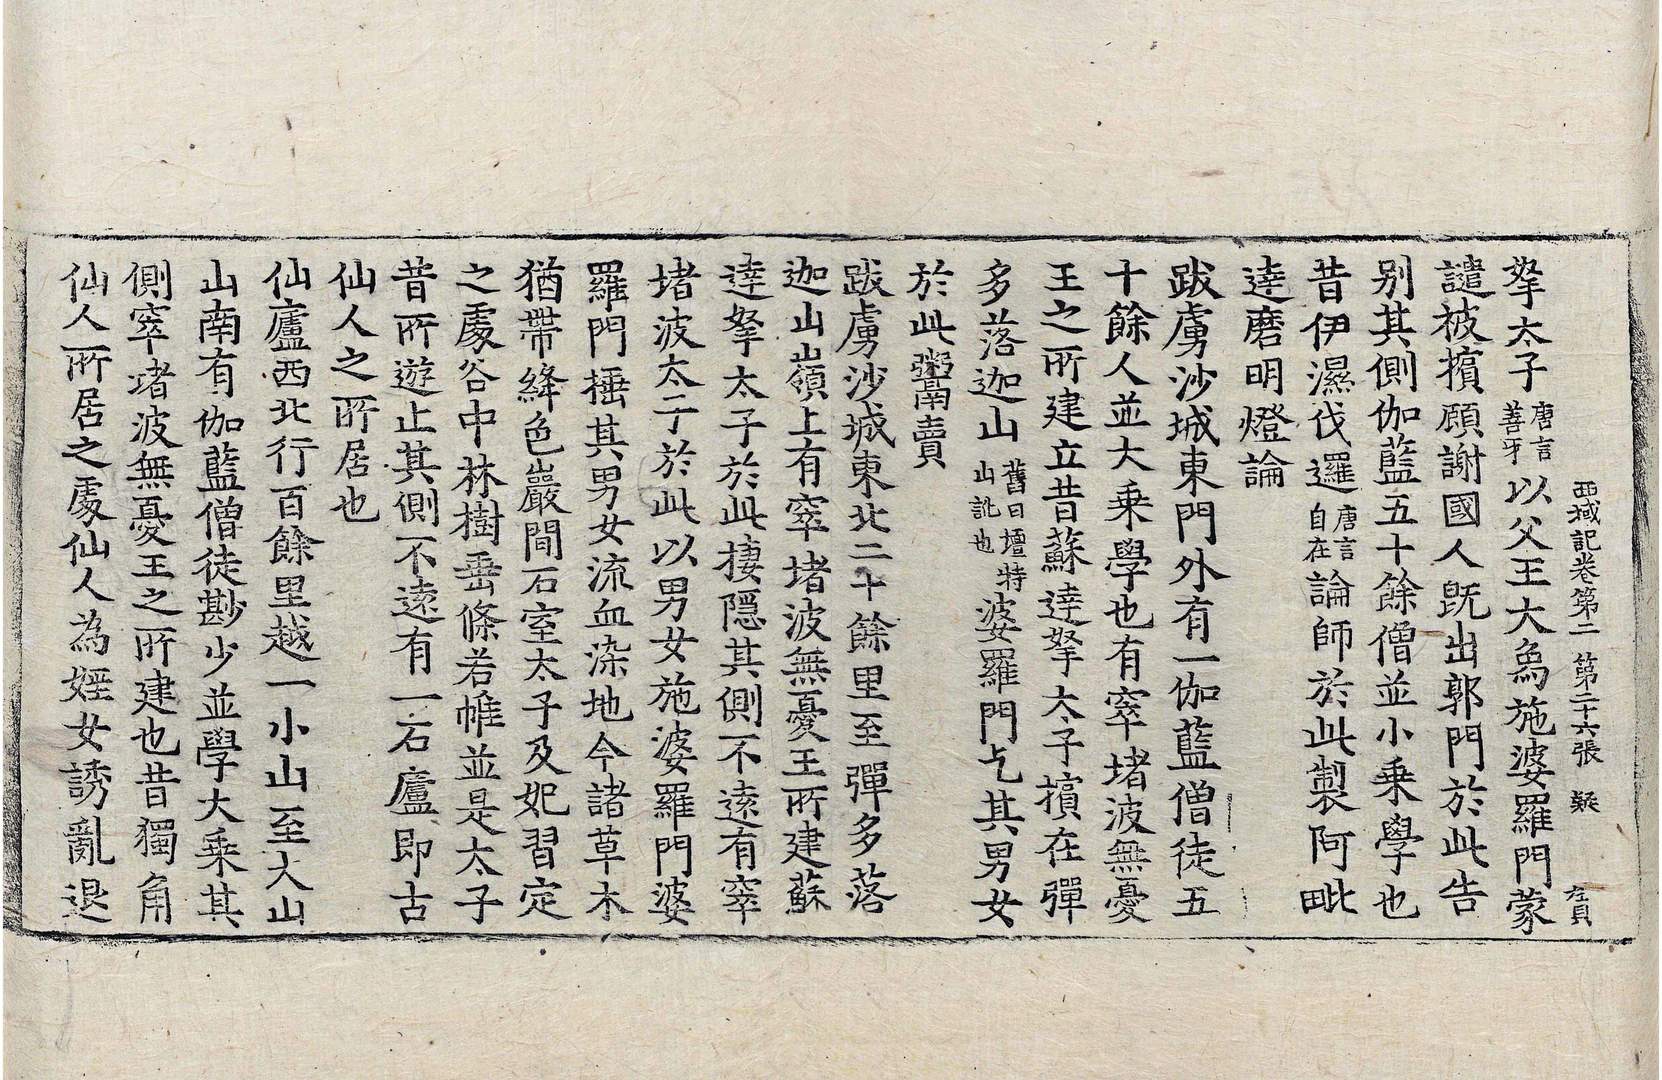 西域記卷第二 第二十六張 疑 左貝
拏太子唐言善牙以父王大象施婆羅門蒙
譴被擯顧謝國人既出郭門於此告
别其側伽藍五十餘僧並小乘學也
昔伊濕伐邏唐言自在論師於此製阿毗
達磨明燈論
跋虜沙城東門外有一伽藍僧徒五
十餘人並大乘學也有窣堵波無憂
王之所建立昔蘇達拏太子擯在彈
多落迦山舊曰壇特山訛也婆羅門乞其男女
於此鬻賣
跋虜沙城東北二十餘里至彈多落
迦山嶺上有窣堵波無憂王所建蘇
達拏太子於此棲隱其側不遠有窣
堵波太子於此以男女施婆羅門婆
羅門捶其男女流血染地今諸草木
猶帶絳色巖間石室太子及妃習定
之處谷中林樹垂條若帷並是太子
昔所遊止其側不遠有一石廬即古
仙人之所居也
仙廬西北行百餘里越一小山至大山
山南有伽藍僧徒尠少並學大乘其
側窣堵波無憂王之所建也昔獨角
仙人所居之處仙人為婬女誘亂退